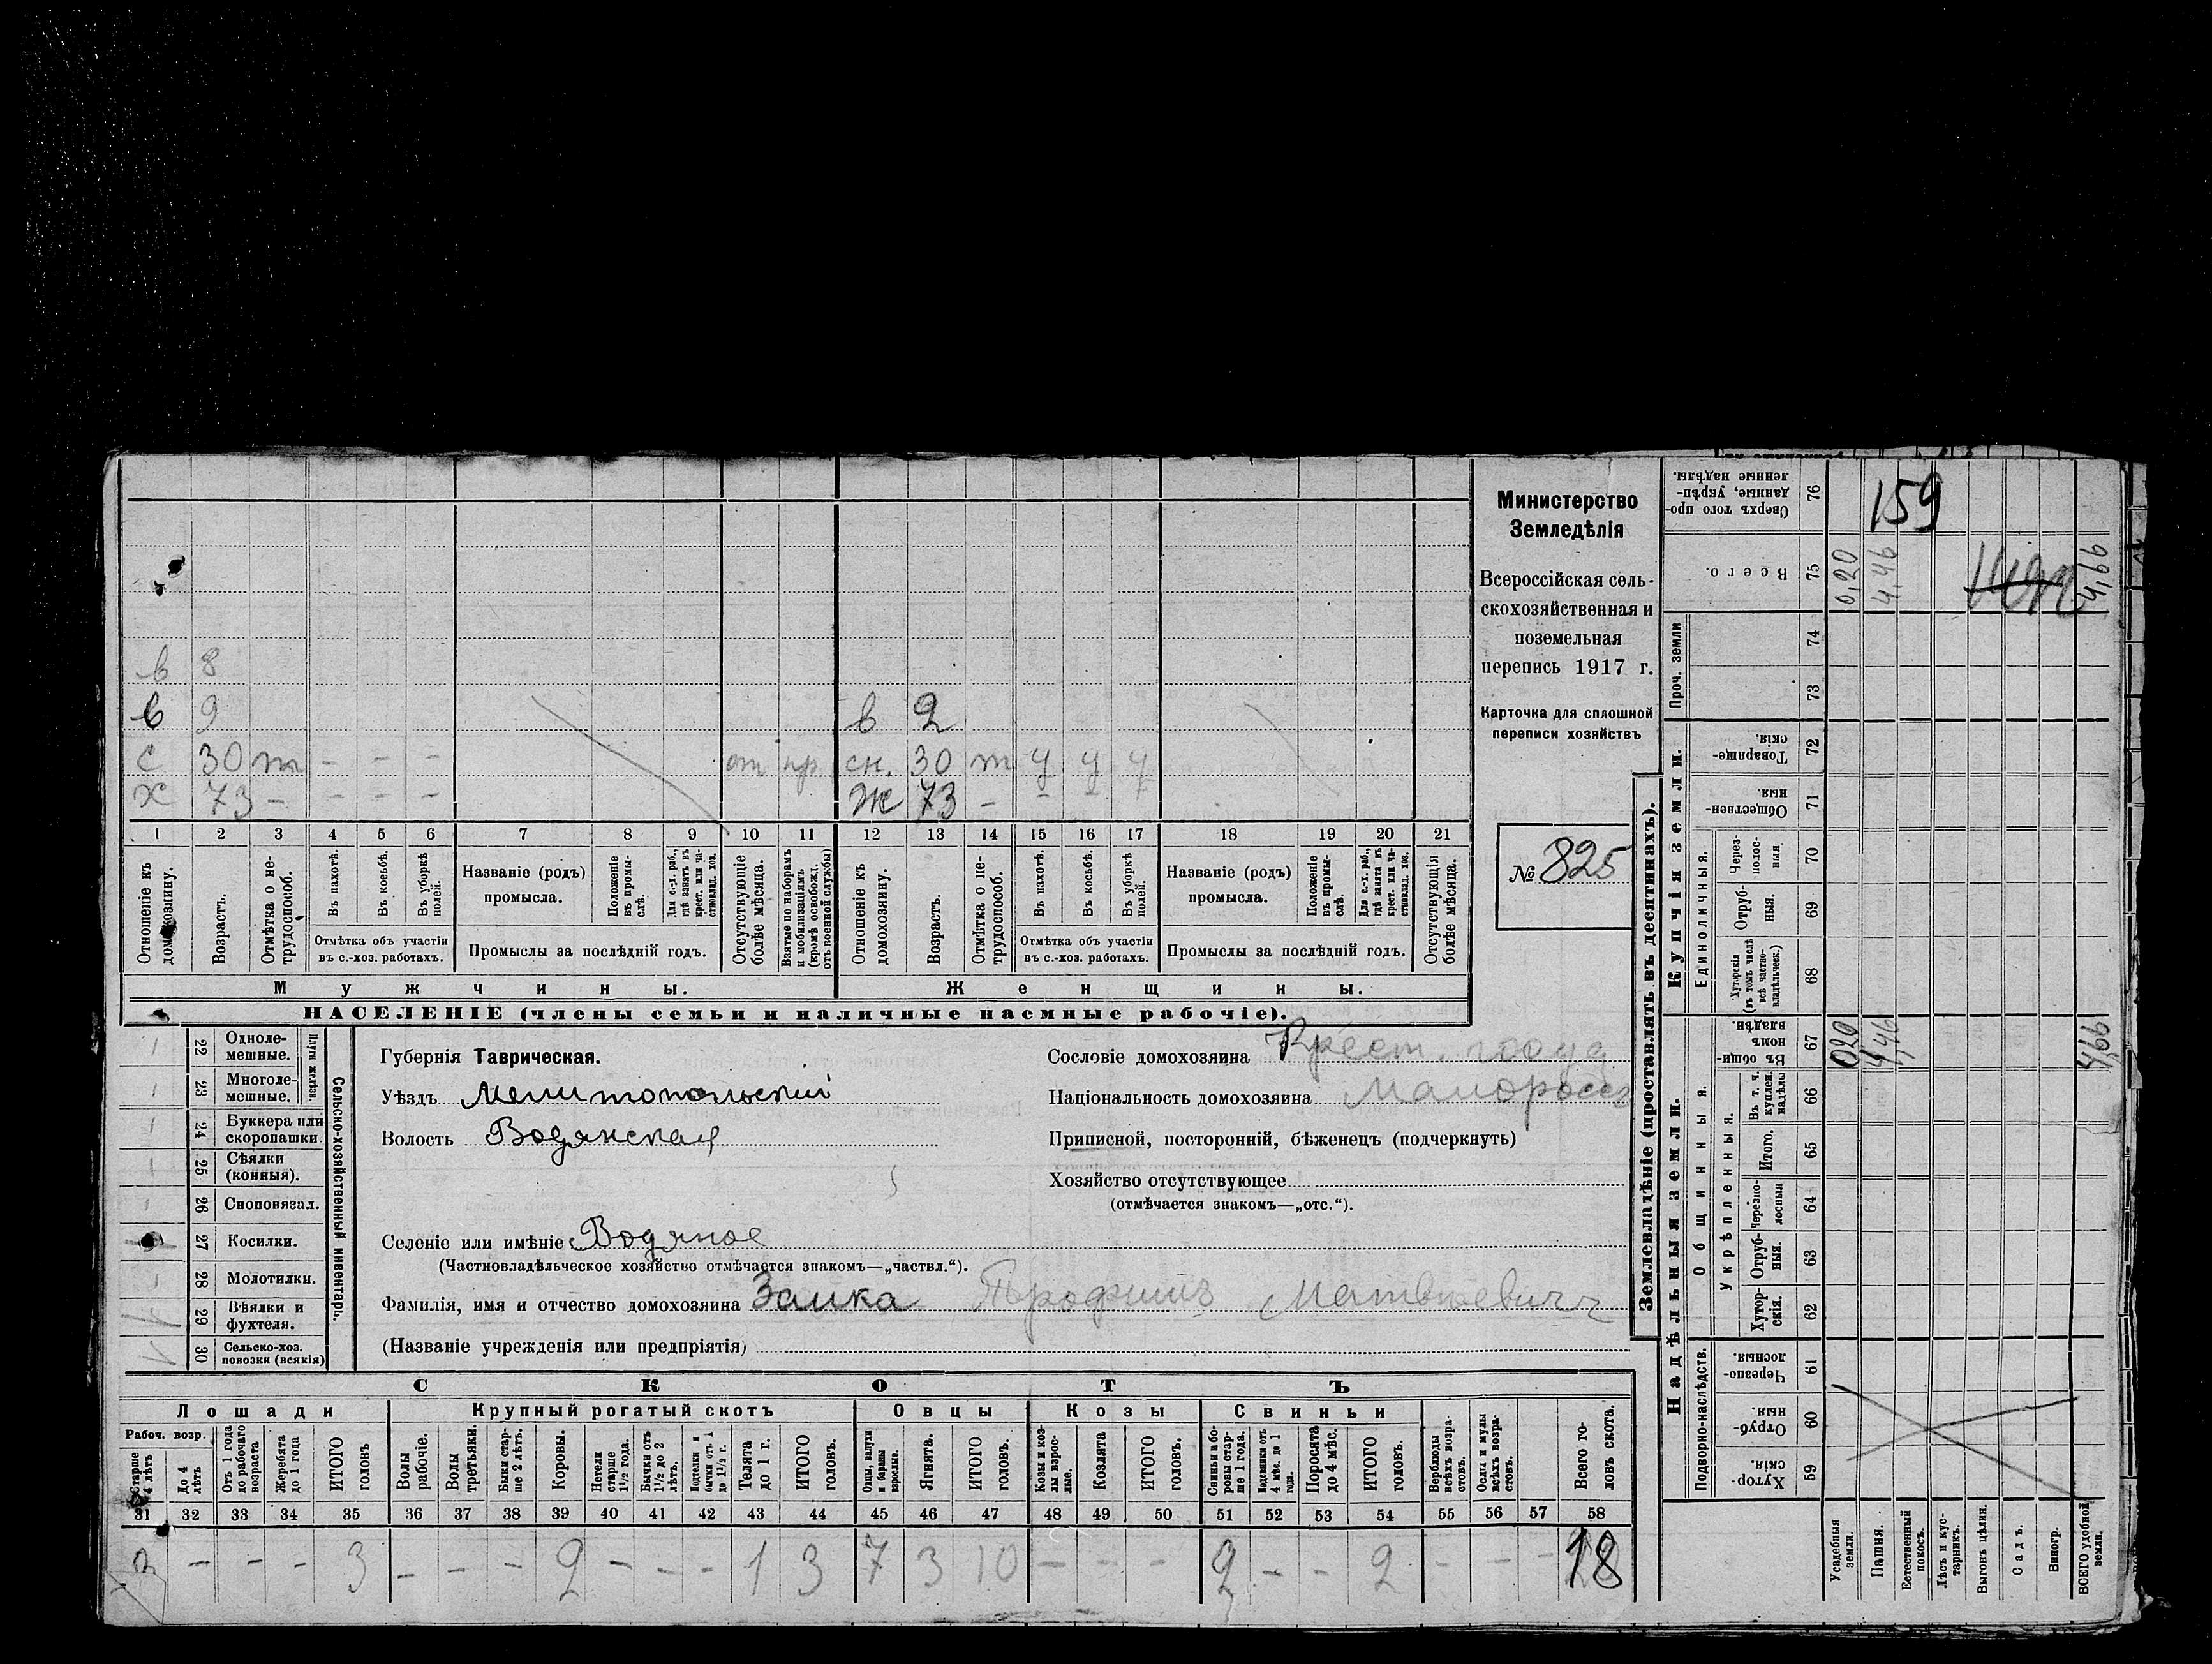 в 8
в 9 в 2
с 30 т - - - от пр сн. 30 т у у у
х 73 - - - - ж 73 - - - -
1 2 3 4 5 6 7 8 9 10 11 12 13 14 15 16 17 18 19 20 21
Отношеніе къ домохозяину.
Возрастъ.
Отмѣтка о нетрудоспособ.
Въ пахотѣ.
Въ косьбѣ.
Въ уборкѣ полей.
Отмѣтка объ участіи въ с.-хоз. работахъ.
Названіе (родъ) промысла.
Положеніе въ промыслѣ.
Для с.-х. раб., гдѣ занятъ въ крест. или частновлад. хоз.
Промыслы за послѣдній годъ.
Отсутствующіе болѣе мѣсяца.
Взятые по наборамъ и мобилизаціямъ (кромѣ освобожд. отъ военной службы)
Отношеніе къ домохозяину.
Возрастъ.
Отмѣтка о нетрудоспособ.
Въ пахотѣ.
Въ косьбѣ.
Въ уборкѣ полей.
Отмѣтка объ участіи въ с.-хоз. работахъ.
Названіе (родъ) промысла.
Положеніе въ промыслѣ.
Для с.-х. раб., гдѣ занята въ крест. или частновлад. хоз.
Промыслы за послѣдній годъ.
Отсутствующія болѣе мѣсяца.
Мужчины. Женщины.
НАСЕЛЕНІЕ (члены семьи и наличные наемные рабочіе).
Министерство
Земледѣлія
Всероссійская сель-
скохозяйственная и
поземельная
перепись 1917 г.
Карточка для сплошной
переписи хозяйствъ
№ 825
Сельско-хозяйственный инвентарь.
Плуги желѣзн.
22 Одноле-
мешные.
23 Многоле-
мешные.
24 Буккера или
скоропашки.
25 Сѣялки
(конныя).
26 Сноповязал.
27 Косилки.
28 Молотилки.
29 Вѣялки и
фухтеля.
30 Сельско-хоз.
повозки (всякія)
Губернія Таврическая.
Уѣздъ Мелитопольскій
Волость Водянская
Селеніе или имѣніе Водяное
(Частновладѣльческое хозяйство отмѣчается знакомъ—„частвл.“).
Фамилія, имя и отчество домохозяина Заика Трофимъ Матвѣевичъ
(Названіе учрежденія или предпріятія)
Сословіе домохозяина Крест.
Національность домохозяина Малороссъ
Приписной, посторонній, бѣженецъ (подчеркнуть)
Хозяйство отсутствующее
(отмѣчается знакомъ—„отс.“).
СКОТЪ
Лошади Крупный рогатый скотъ Овцы Козы Свиньи
Рабоч. возр.
Старше 4 лѣтъ
До 4 лѣтъ
Отъ 1 года до рабочаго возраста
Жеребята до 1 года
ИТОГО головъ
Волы рабочіе.
Волы третьяки.
Быки старше 2 лѣтъ.
Коровы.
Нетели старше 1½ года.
Бычки отъ 1½ до 2 лѣтъ.
Подтелки и бычки отъ 1 до 1½ г.
Телята до 1 г.
ИТОГО головъ.
Овцы, валухи и бараны взрослые.
Ягнята.
ИТОГО головъ.
Козы и козлы взрослые.
Козлята
ИТОГО головъ.
Свиньи и боровы старше 1 года.
Подсвинки отъ 4 мѣс. до 1 года.
Поросята до 4 мѣс.
ИТОГО головъ.
Верблюды всѣхъ возрастовъ.
Ослы и мулы всѣхъ возрастовъ.
Всего головъ скота.
31 32 33 34 35 36 37 38 39 40 41 42 43 44 45 46 47 48 49 50 51 52 53 54 55 56 57 58
3 - - - 3 - - - 2 - - - 1 3 7 3 10 - - - 2 - - 2 - - - 18
Землевладѣніе (проставлять въ десятинахъ).
Надѣльныя земли. Купчія земли. Проч. земли
Подворно-наслѣдств.
Общинныя.
Укрѣпленныя.
Единоличныя.
Сверхъ того проданные, укрѣпленные надѣлы. 76 159
Всего. 75 0,20 4,46 4,66
74
73
Товарищескія. 72
Общественныя. 71
Черезполосныя 70
Отрубныя. 69
Хуторскія (въ томъ числѣ всѣ частновладѣльческ.) 68
Въ общинномъ владѣн. 67 0,20 4,46 4,66
Въ т. ч. куплен. надѣлы 66
Итого. 65
Черезполосныя 64
Отрубныя. 63
Хуторскія. 62
Черезполосныя. 61
Отрубныя. 60
Хуторскія. 59
Усадебныя земли.
Пашня.
Естественный покосъ.
Лѣсъ и кустарникъ.
Выгонъ цѣлин.
Садъ.
Виногр.
ВСЕГО удобной земли.